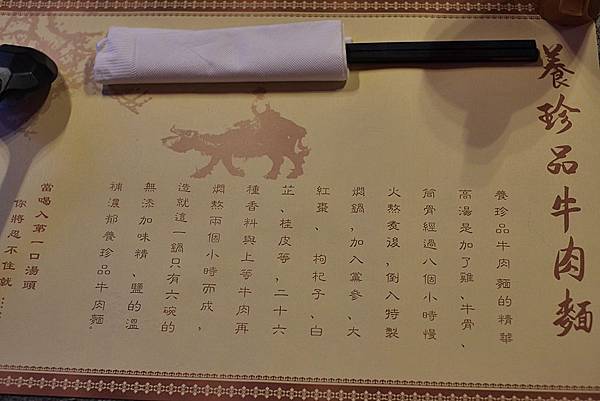 養珍品牛肉麵
養珍品牛肉麵的精華
高湯是加了雞、牛骨、
筒骨經過八個小時慢
火熬煮後，倒入特製
燜鍋，加入黨參、大
紅棗、枸杞子、白
芷、桂皮等，二十六
種香料與上等牛肉再
燜熬兩個小時而成，
造就這一鍋只有六碗的
無添加味精、鹽的溫
補濃郁養珍品牛肉麵。
當喝入第一口湯頭
你將忍不住就……